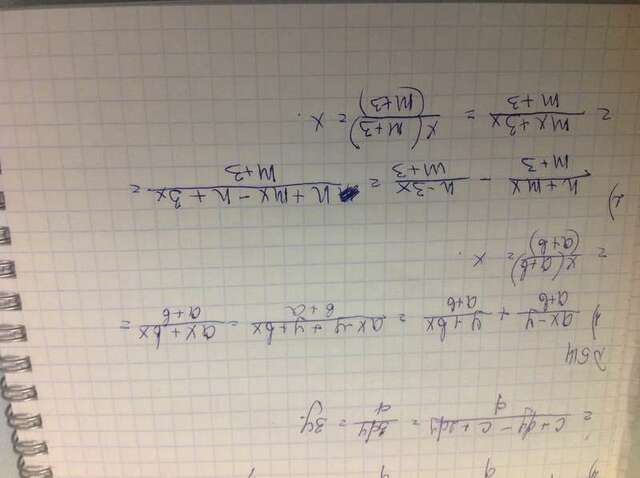 = (c + dy - c + 2dy)/d = 3dy/d = 3y.
1) (ax - y)/(a + b) + (y + bx)/(a + b) = (ax - y + y + bx)/(b + a) = (ax + bx)/(a + b) =
= x(a + b)/(a + b) = x.
2) (n + mx)/(m + 3) - (n - 3x)/(m + 3) = (n + mx - n + 3x)/(m + 3) =
= (mx + 3x)/(m + 3) = x(m + 3)/(m + 3) = x.